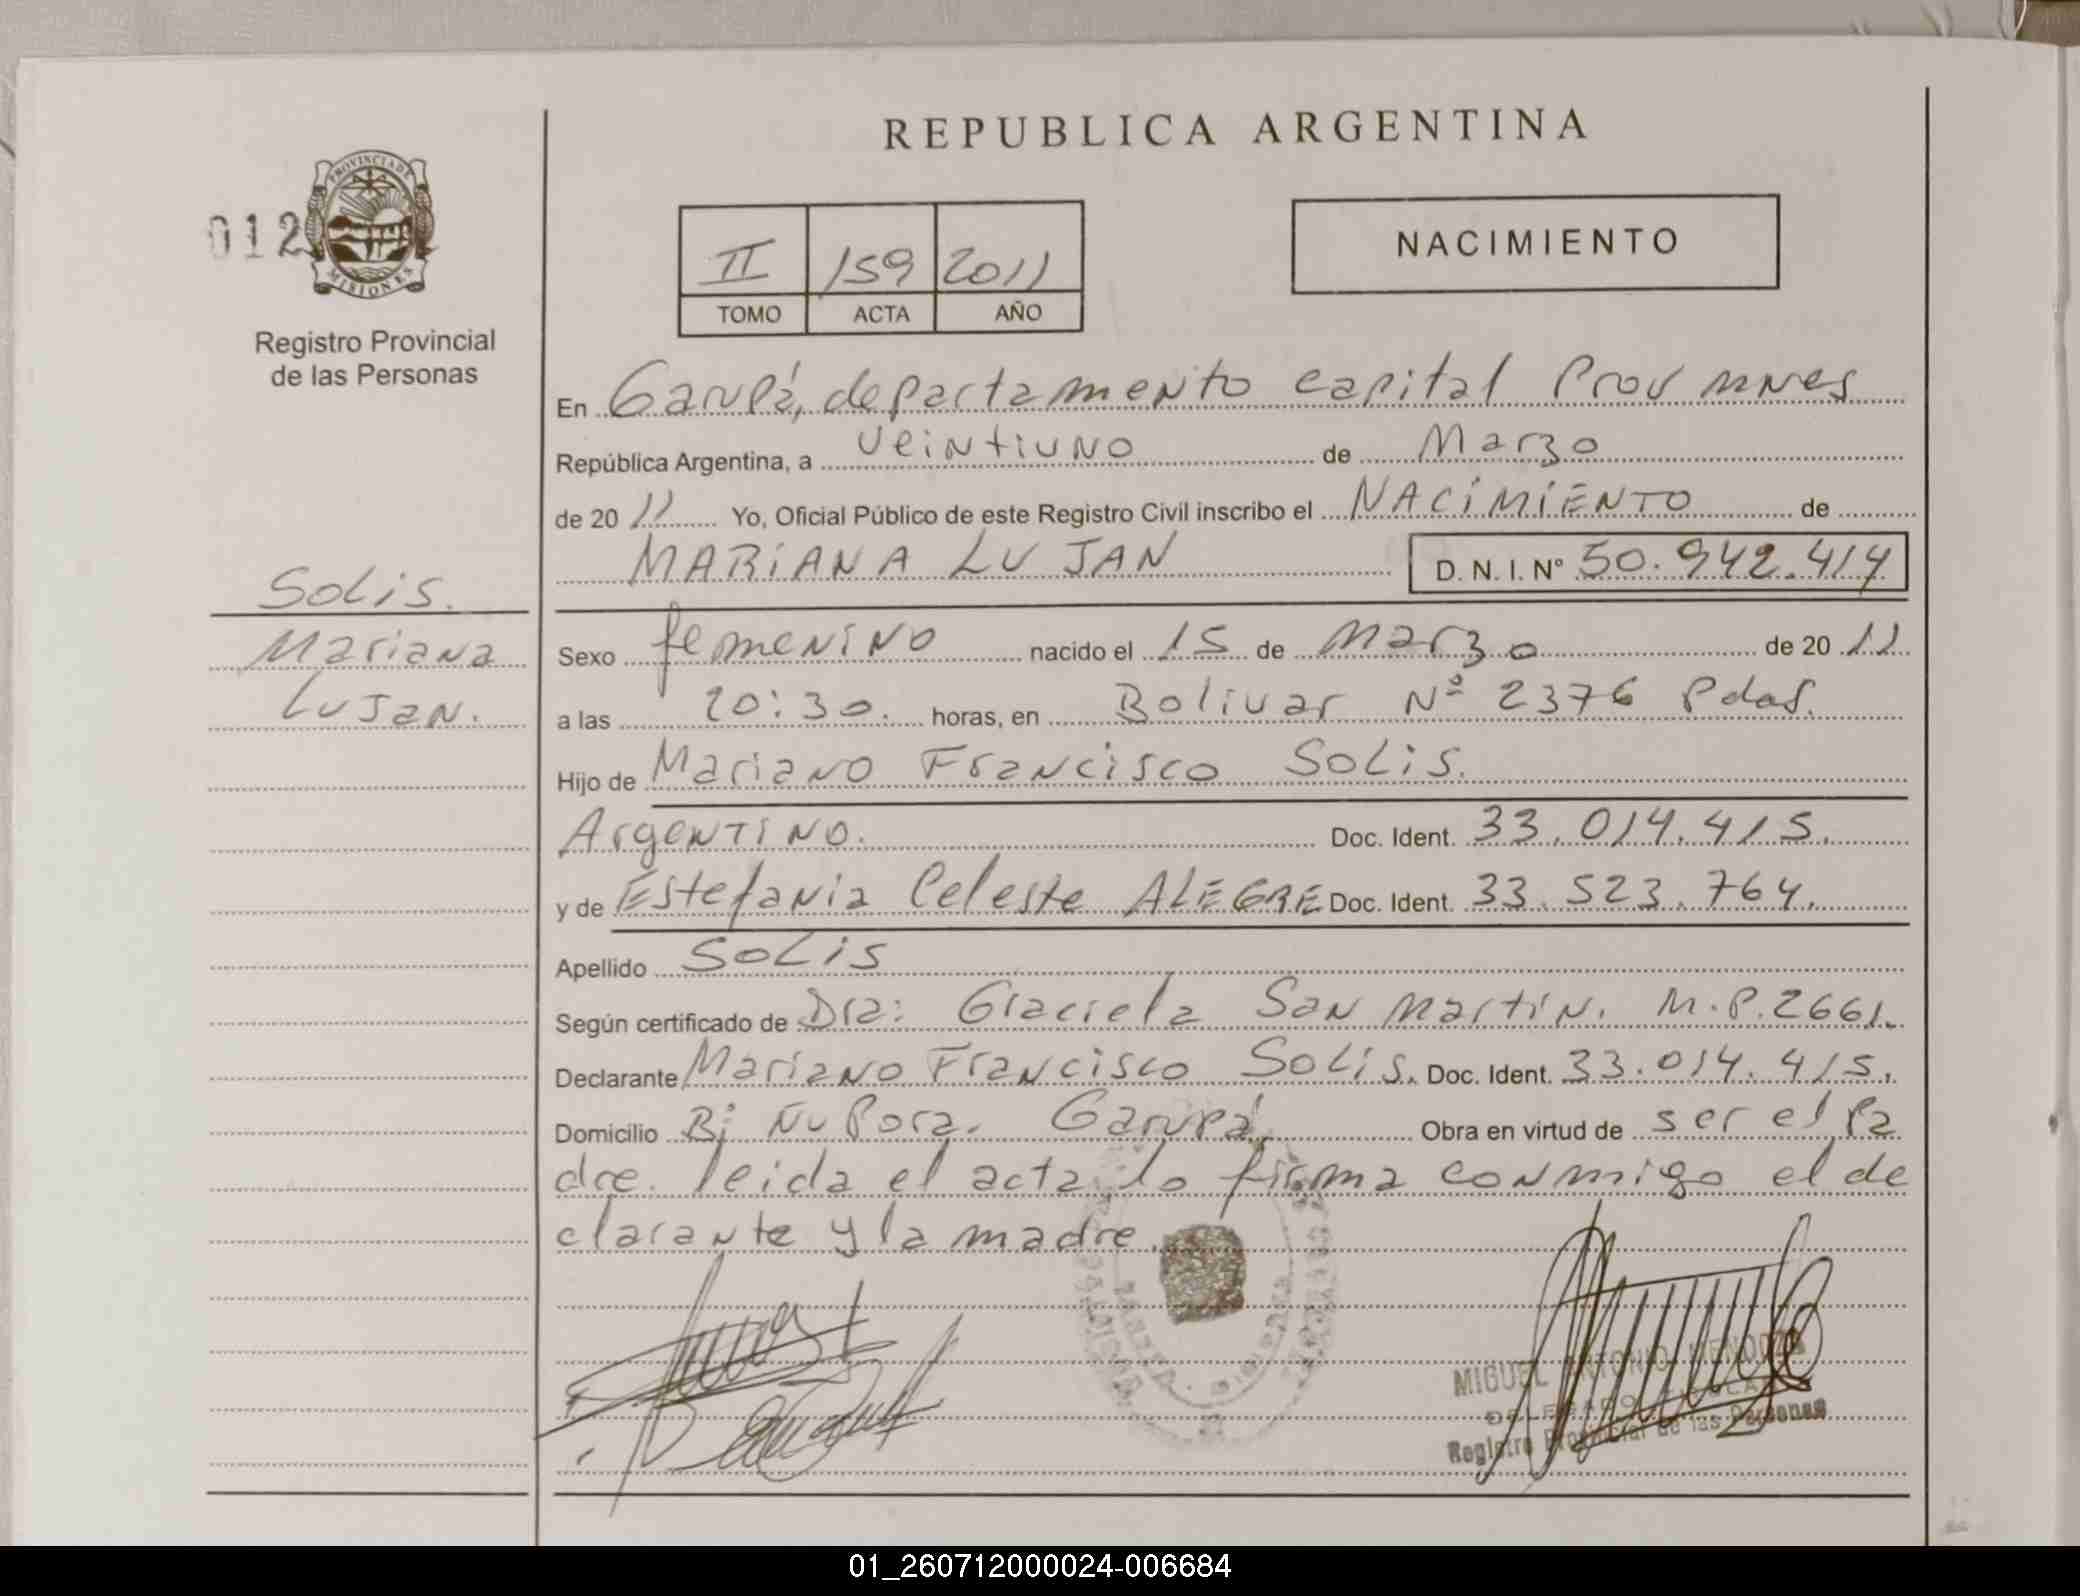 REPUBLICA ARGENTINA
012
PROVINCIA DE MISIONES
Registro Provincial
de las Personas
II 159 2011
TOMO ACTA AÑO
NACIMIENTO
En Garupá, departamento capital Prov mnes
República Argentina, a veintiuno de Marzo
de 2011 Yo, Oficial Público de este Registro Civil inscribo el NACIMIENTO de
MARIANA LUJAN D. N. I. Nº 50.942.414
Solis.
Mariana
Lujan.
Sexo femenino nacido el 15 de Marzo de 2011
a las 20:30. horas, en Bolivar Nº 2376 Pdas.
Hijo de Mariano Francisco Solis.
Argentino. Doc. Ident. 33.014.415.
y de Estefania Celeste ALEGRE Doc. Ident. 33.523.764.
Apellido Solis
Según certificado de Dra: Graciela San Martín. M.P.2661.
Declarante Mariano Francisco Solis. Doc. Ident. 33.014.415.
Domicilio Bº Ñu Pora. Garupá. Obra en virtud de ser el Pa
dre. leida el acta lo firma conmigo el de
clarante y la madre.
MIGUEL ANTONIO MENDOZA
DELEGADO TITULAR
Registro Provincial de las Personas
01_260712000024-006684